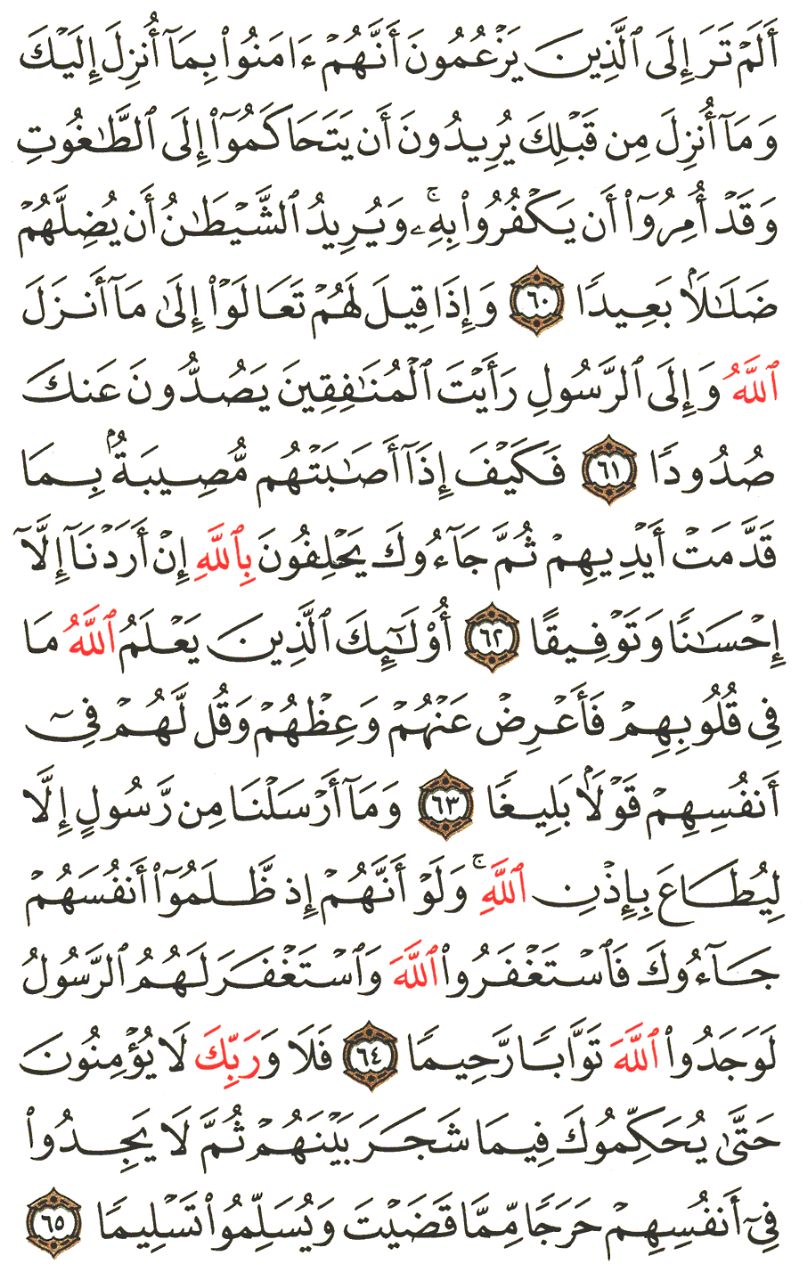 أَلَمْ تَرَ إِلَى ٱلَّذِينَ يَزْعُمُونَ أَنَّهُمْ ءَامَنُوا۟ بِمَآ أُنزِلَ إِلَيْكَ
وَمَآ أُنزِلَ مِن قَبْلِكَ يُرِيدُونَ أَن يَتَحَاكَمُوٓا۟ إِلَى ٱلطَّـٰغُوتِ
وَقَدْ أُمِرُوٓا۟ أَن يَكْفُرُوا۟ بِهِۦۚ وَيُرِيدُ ٱلشَّيْطَـٰنُ أَن يُضِلَّهُمْ
ضَلَـٰلًۢا بَعِيدًا ٦٠ وَإِذَا قِيلَ لَهُمْ تَعَالَوْا۟ إِلَىٰ مَآ أَنزَلَ
ٱللَّهُ وَإِلَى ٱلرَّسُولِ رَأَيْتَ ٱلْمُنَـٰفِقِينَ يَصُدُّونَ عَنكَ
صُدُودًا ٦١ فَكَيْفَ إِذَآ أَصَـٰبَتْهُم مُّصِيبَةٌۢ بِمَا
قَدَّمَتْ أَيْدِيهِمْ ثُمَّ جَآءُوكَ يَحْلِفُونَ بِٱللَّهِ إِنْ أَرَدْنَآ إِلَّآ
إِحْسَـٰنًا وَتَوْفِيقًا ٦٢ أُو۟لَـٰٓئِكَ ٱلَّذِينَ يَعْلَمُ ٱللَّهُ مَا
فِى قُلُوبِهِمْ فَأَعْرِضْ عَنْهُمْ وَعِظْهُمْ وَقُل لَّهُمْ فِىٓ
أَنفُسِهِمْ قَوْلًۢا بَلِيغًا ٦٣ وَمَآ أَرْسَلْنَا مِن رَّسُولٍ إِلَّا
لِيُطَاعَ بِإِذْنِ ٱللَّهِۚ وَلَوْ أَنَّهُمْ إِذ ظَّلَمُوٓا۟ أَنفُسَهُمْ
جَآءُوكَ فَٱسْتَغْفَرُوا۟ ٱللَّهَ وَٱسْتَغْفَرَ لَهُمُ ٱلرَّسُولُ
لَوَجَدُوا۟ ٱللَّهَ تَوَّابًا رَّحِيمًا ٦٤ فَلَا وَرَبِّكَ لَا يُؤْمِنُونَ
حَتَّىٰ يُحَكِّمُوكَ فِيمَا شَجَرَ بَيْنَهُمْ ثُمَّ لَا يَجِدُوا۟
فِىٓ أَنفُسِهِمْ حَرَجًا مِّمَّا قَضَيْتَ وَيُسَلِّمُوا۟ تَسْلِيمًا ٦٥